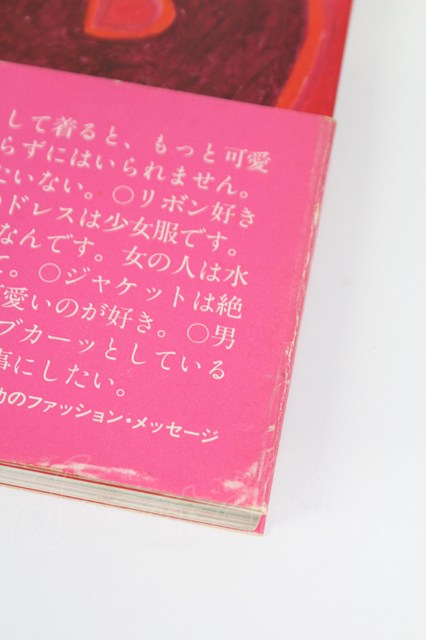 して着ると、もっと可愛
らずにはいられません。
たいない。○リボン好き
ドレスは少女服です。
なんです。女の人は水
て。○ジャケットは絶
愛いのが好き。○男
ブカーッとしている
事にしたい。
のファッション・メッセージ